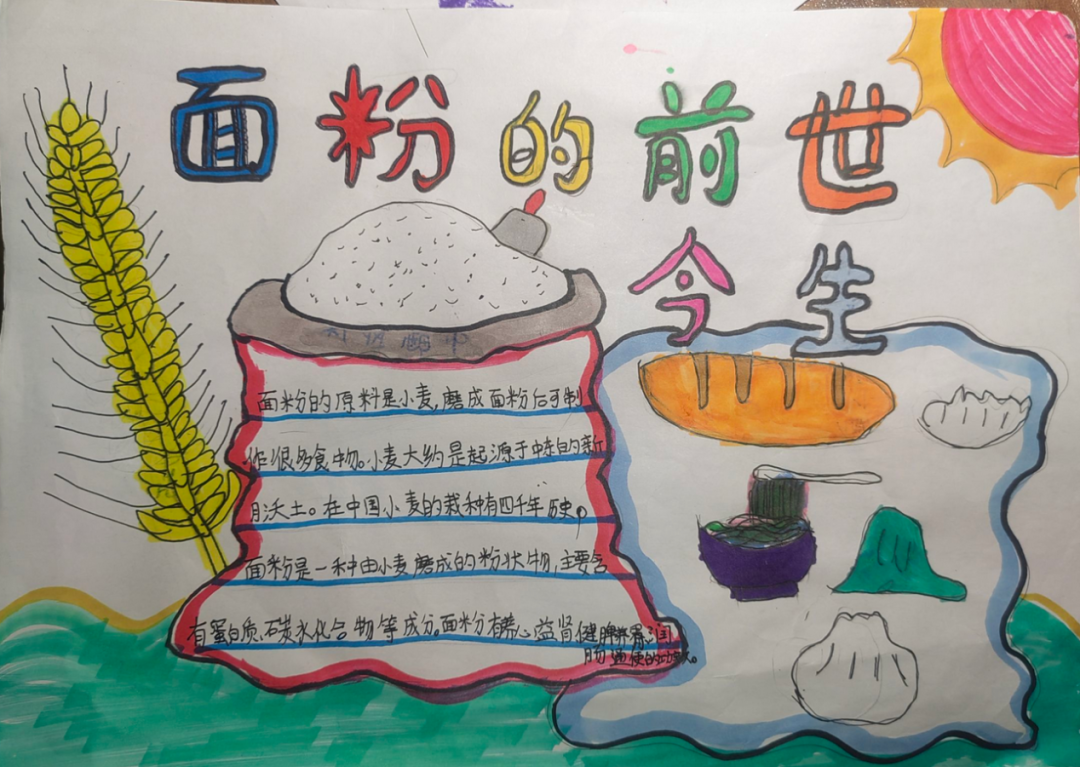 面粉的前世
今生
面粉的原料是小麦,磨成面粉后可制
作很多食物。小麦大约是起源于中东的新
月沃土。在中国小麦的栽种有四千年历史,
面粉是一种由小麦磨成的粉状物,主要含
有蛋白质、碳水化合物等成分。面粉有养心益肾健脾养胃润
肠通便的功效。